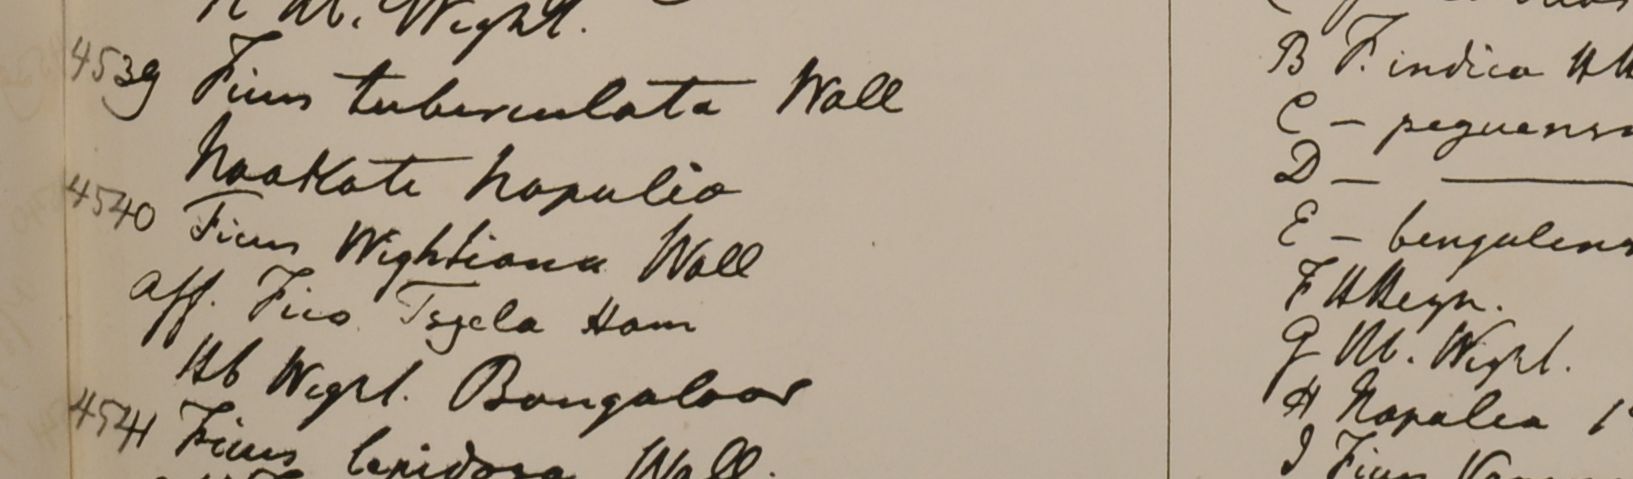 M. Wight.
4539 Ficus tuberculata Wall
Napalia
4540 Ficus Wightiana Wall
aff. Fico Tsjela Ham
Hb Wight. Bangaloor
4541 Ficus lepidosa Wall.
B F. indica HH
C — peguensis
D — —
E — bengalens
F HHeyn.
G M. Wight.
H Napalia 1
I Ficus